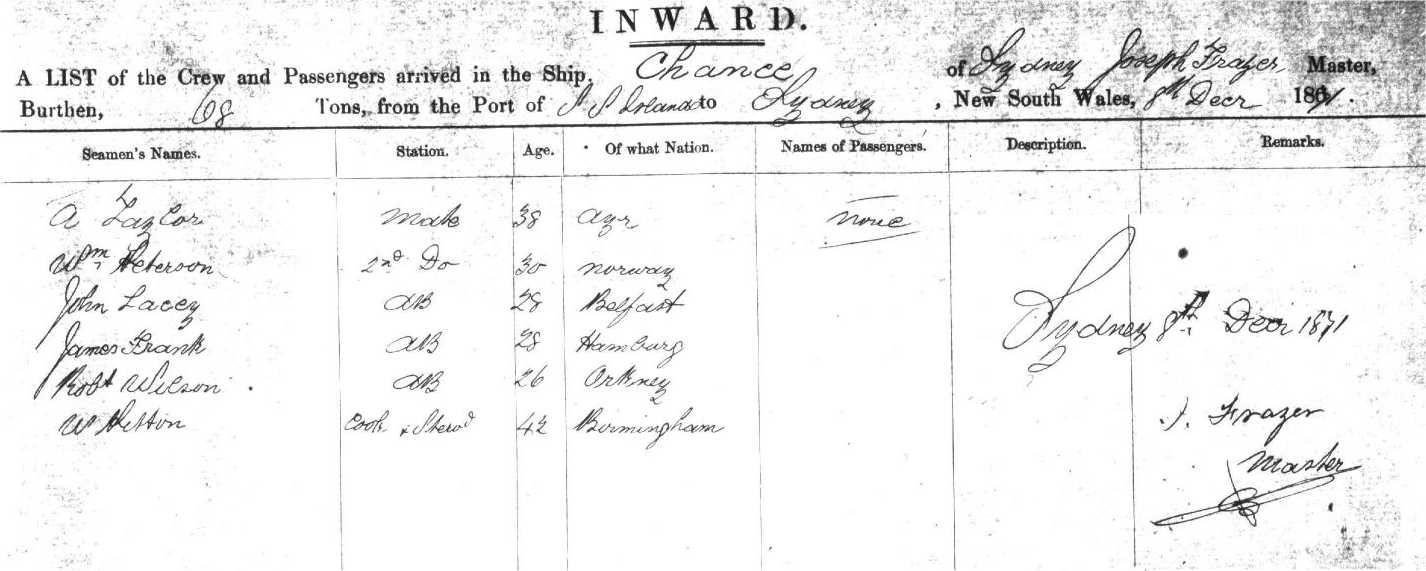 INWARD.
A LIST of the Crew and Passengers arrived in the Ship, Chance of Sydney Joseph Frazer, Master,
Burthen, 68 Tons, from the Port of S S Islands to Sydney, New South Wales, 8th Decr 1871.
Seamen's Names. Station. Age. Of what Nation. Names of Passengers. Description. Remarks.
A Taylor Mate 38 Ayr None
Wm Peterson 2nd Do 30 Norway
John Lacey AB 28 Belfast
James Frank AB 28 Hamburg
Sydney 8th Decr 1871
Robt Wilson AB 26 Orkney
W Hetton Cook & Stewd 42 Birmingham
J. Frazer
Master